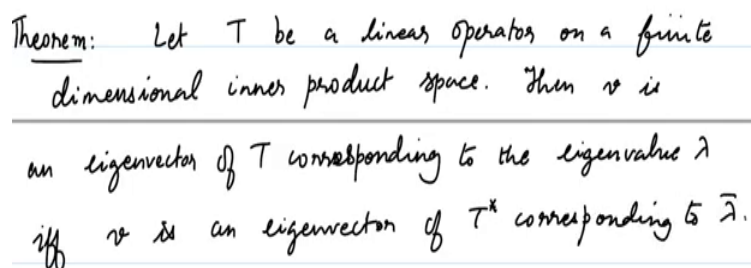 Theorem: Let T be a linear operator on a finite
dimensional inner product space. Then v is
an eigenvector of T corresponding to the eigenvalue λ
iff v is an eigenvector of T* corresponding to λ̄.